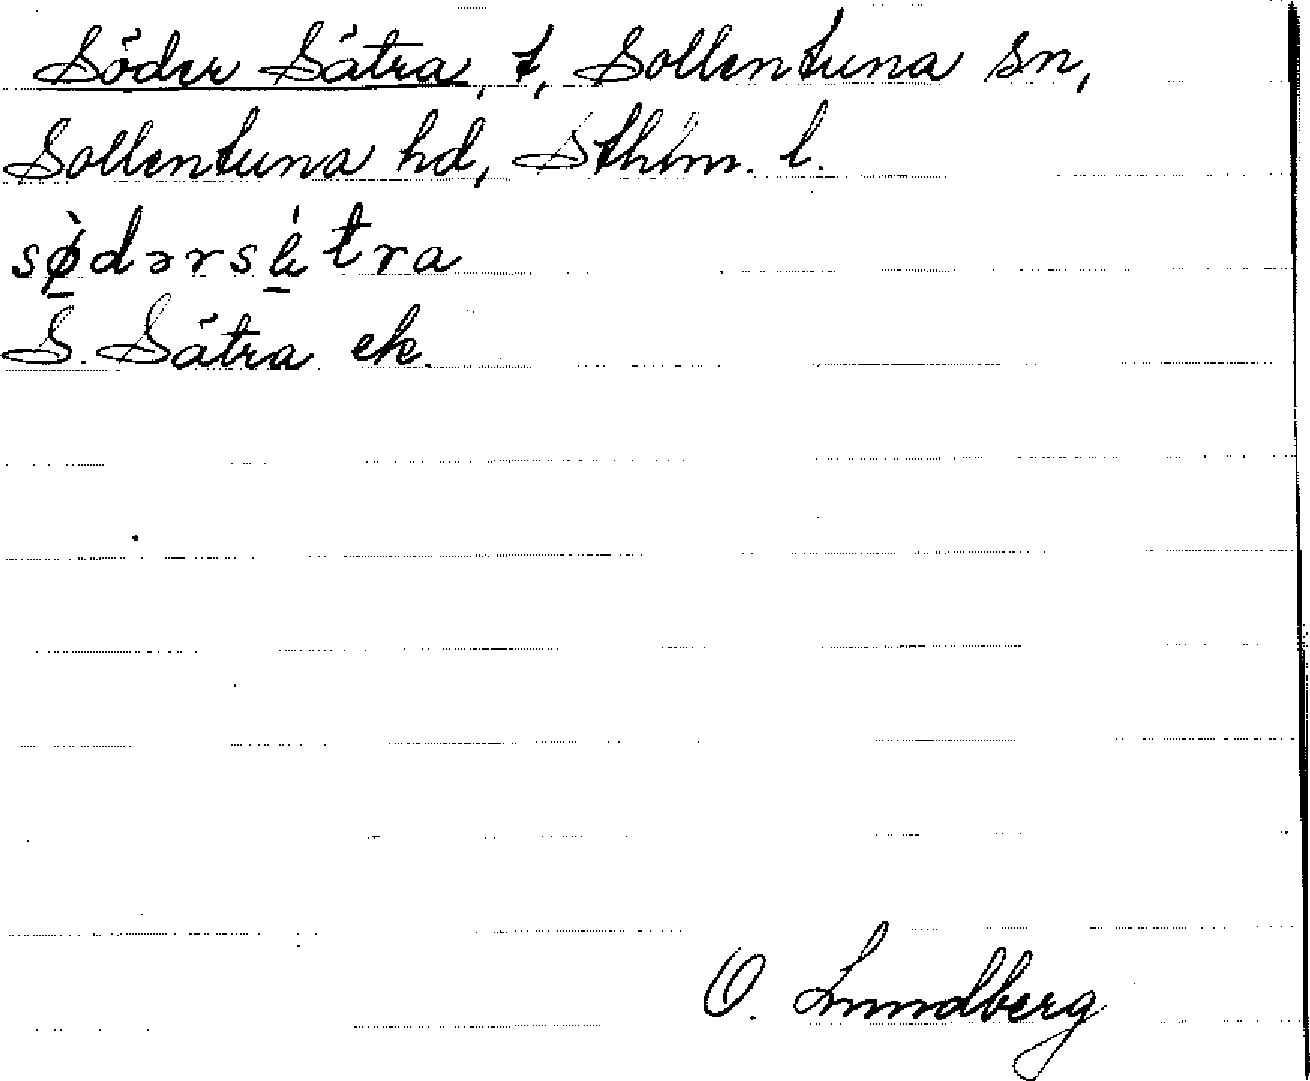 Söder Sätra, t, Sollentuna sn,
Sollentuna hd, Sthlm. l.
sø̀dərsǽtra
S. Sätra ek.
O. Lundberg